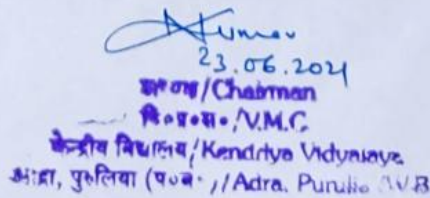 Kumar
23.06.2021
/Chairman
वि०प्र०स०/V.M.C.
केन्द्रीय विद्यालय/Kendriya Vidyalaya
आद्रा, पुरुलिया (प०ब०)/Adra, Purulia (W.B